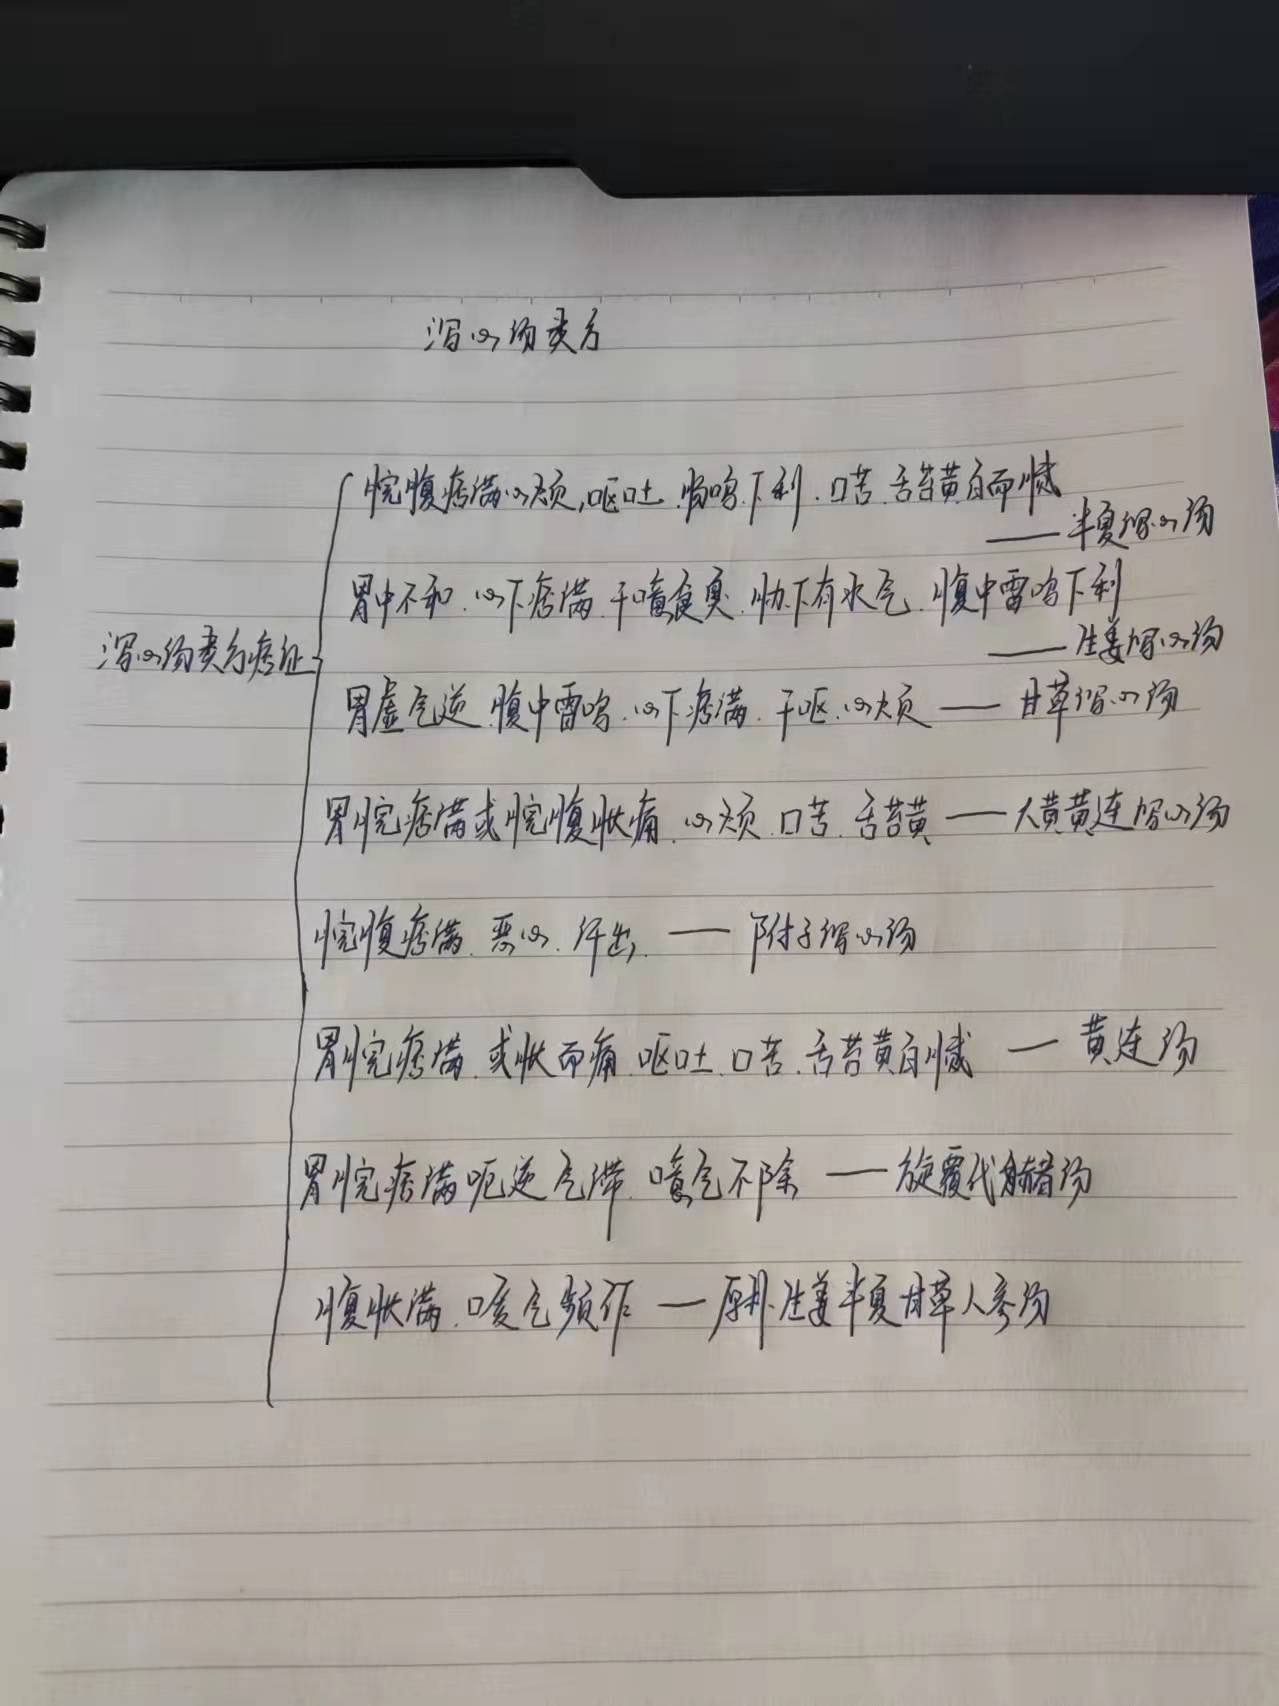 泻心汤类方
脘腹痞满心烦,呕吐.肠鸣.下利.口苦.舌苔黄白而腻
——半夏泻心汤
胃中不和.心下痞满.干噫食臭.胁下有水气.腹中雷鸣下利
——生姜泻心汤
泻心汤类方痞证
胃虚气逆.腹中雷鸣.心下痞满.干呕.心烦——甘草泻心汤
胃脘痞满或脘腹胀痛.心烦.口苦.舌苔黄——大黄黄连泻心汤
脘腹痞满.恶心.汗出.——附子泻心汤
胃脘痞满.或胀而痛.呕吐.口苦.舌苔黄白腻—黄连汤
胃脘痞满呃逆气滞.噫气不除——旋覆代赭汤
腹胀满.嗳气频作—厚朴生姜半夏甘草人参汤